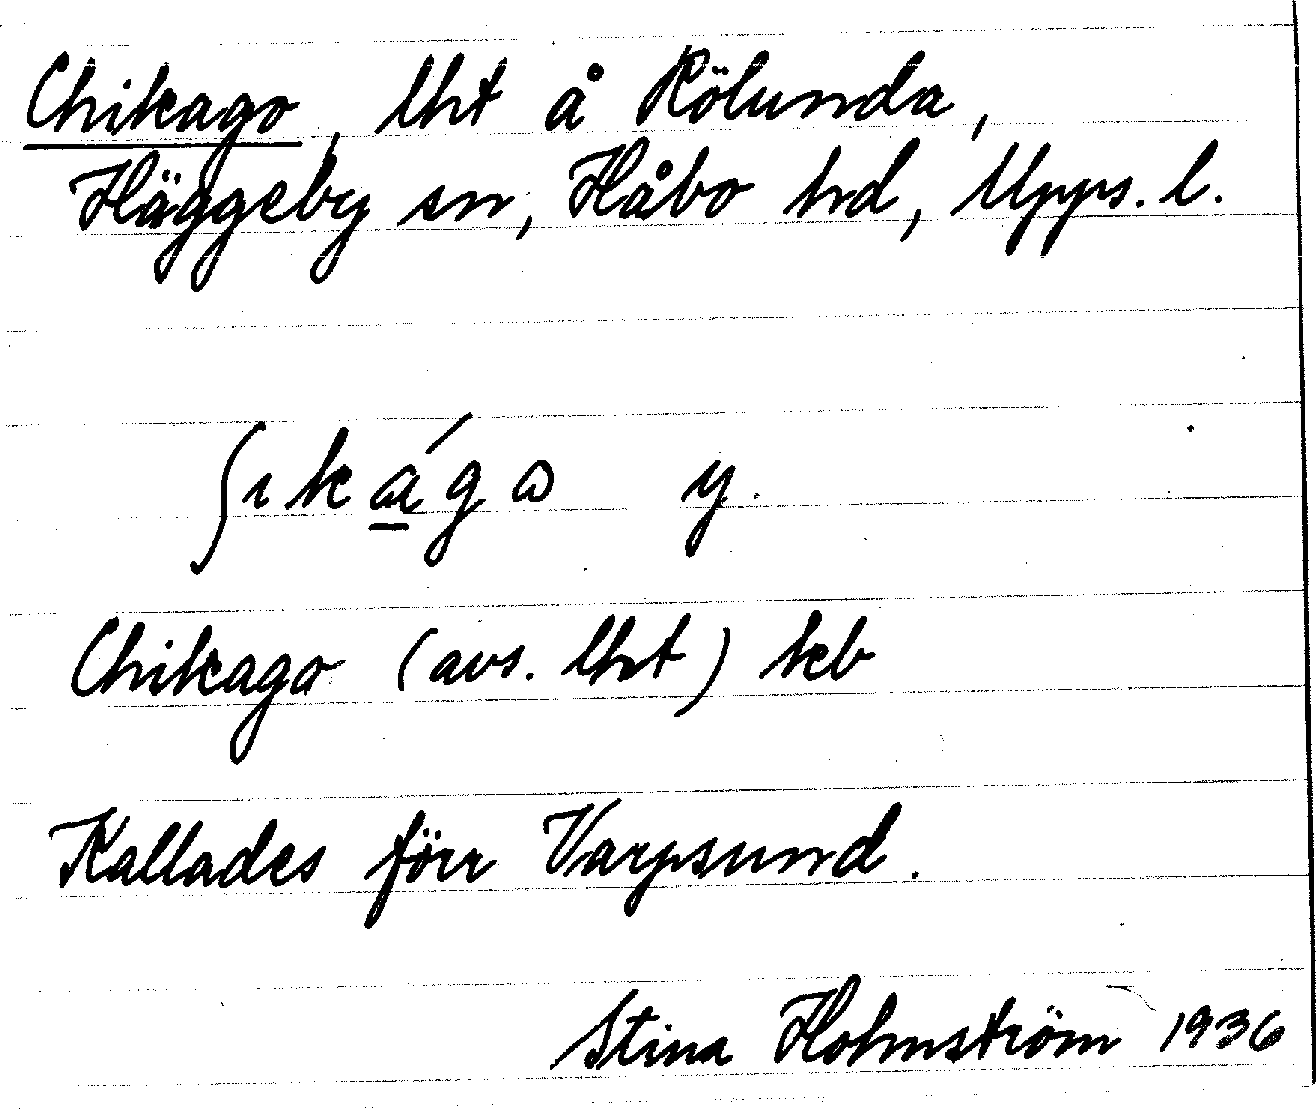 Chikago, lht å Kölunda,
Häggeby sn, Håbo hd, Upps. l.
ʃıkág̣ɷ y.
Chikago (avs. lht) keb
Kallades förr Varpsund.
Stina Holmström 1936